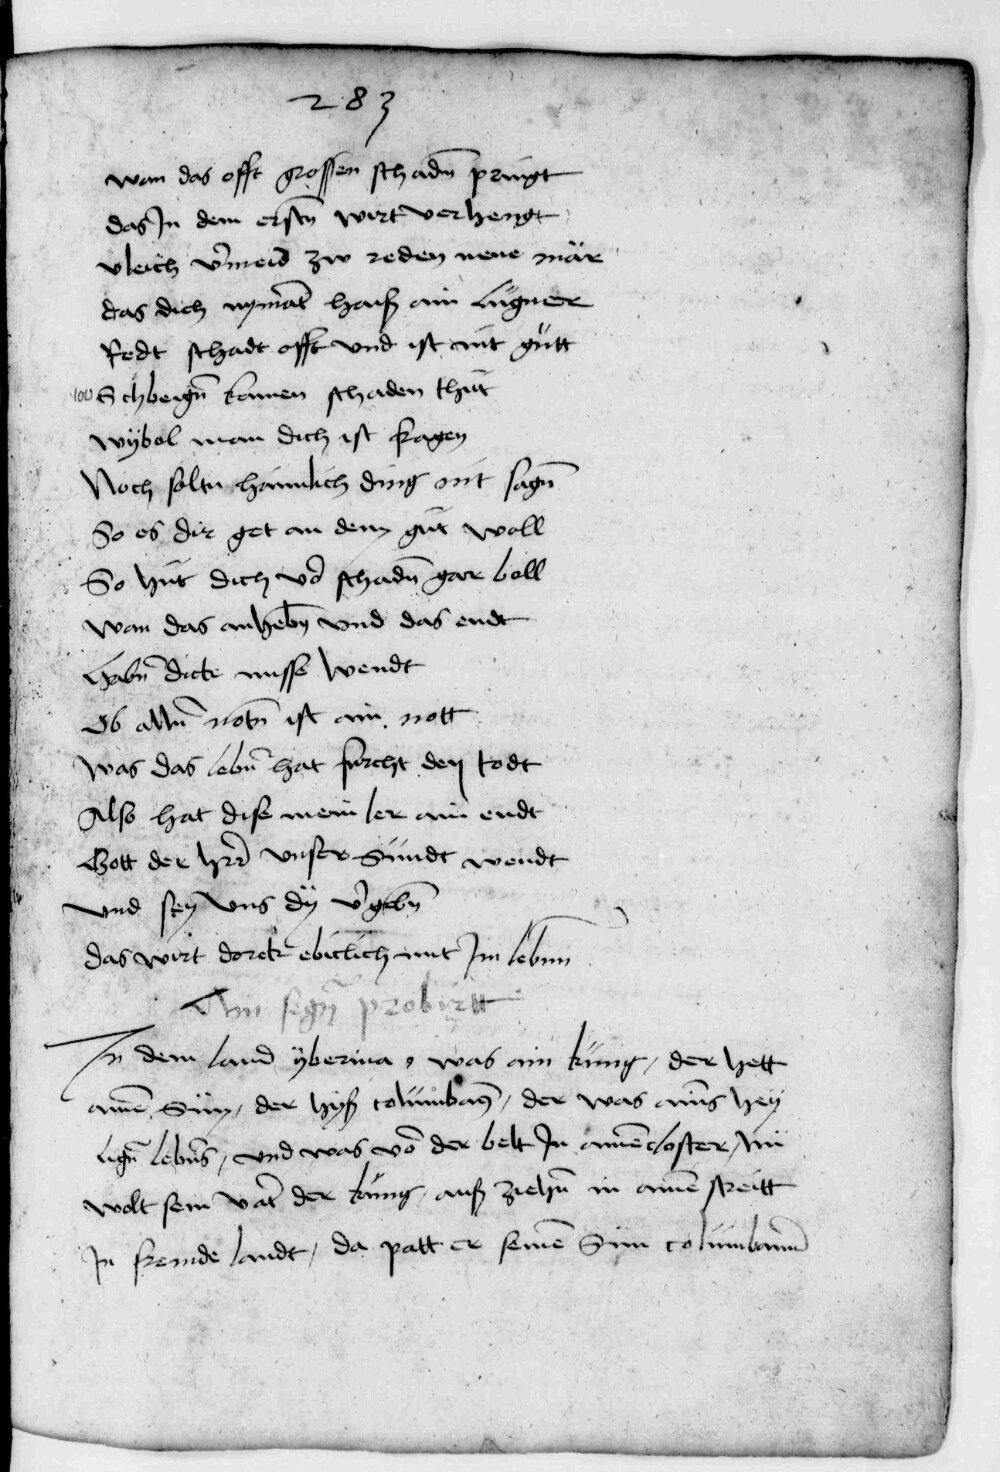 283
wan das offt grossen schadn̄ pringt
das Jn dem erstn̄ wirt verhengt
vleich v̄meid zw reden neue mär
das dich nyma͞t haiß ain lugner
Redt schadt offt vnd ist nit gütt
100 Schbeign̄ kainen schaden thüt
wÿbol man dich ist fragen
Noch soltu haimlich ding nit sagn̄
So es dir get an dem güt woll
So hüt dich vō schadn̄ gar boll
wan das anhebn̄ vnd das endt
Habn̄ dick misse wendt
Ob alln̄ notn̄ ist ain nott
was das lebn̄ hat furcht den todt
Also hat dise mein ler ain endt
Gott der hr̄r vnser Sündt wendt
vnd sey vns dÿ v̄gebn̄
das wirt dortt ebiclich mit Jm lebnn̄
Ain segn̄ probirtt
Jn dem land ÿbernia, was ain küng, der hett
ainē Sün, der hyß columban̄, der was ains hey
lign̄ lebn̄s, vnd was vō der belt Jn ainē closter, Nū
wolt sein vat̄ der küng, auß ziehn̄ in ainē streitt
Jn fremde landt, da patt er seinē Sün columbanū